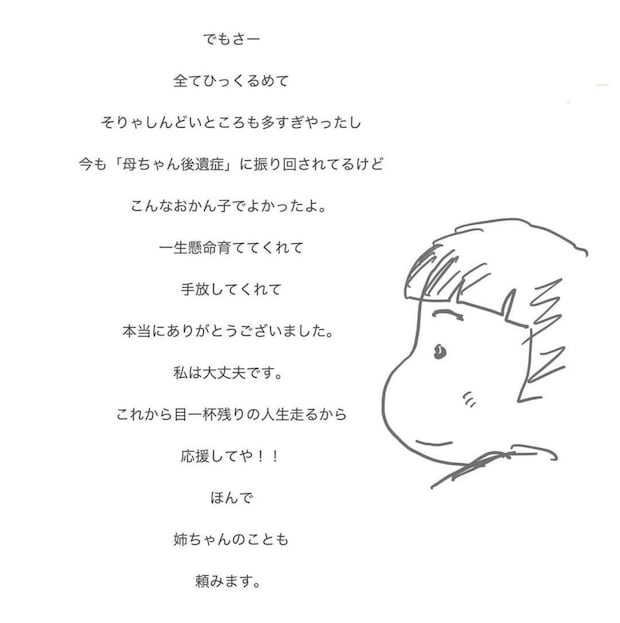 でもさー
全てひっくるめて
そりゃしんどいところも多すぎやったし
今も「母ちゃん後遺症」に振り回されてるけど
こんなおかん子でよかったよ。
一生懸命育ててくれて
手放してくれて
本当にありがとうございました。
私は大丈夫です。
これから目一杯残りの人生走るから
応援してや！！
ほんで
姉ちゃんのことも
頼みます。